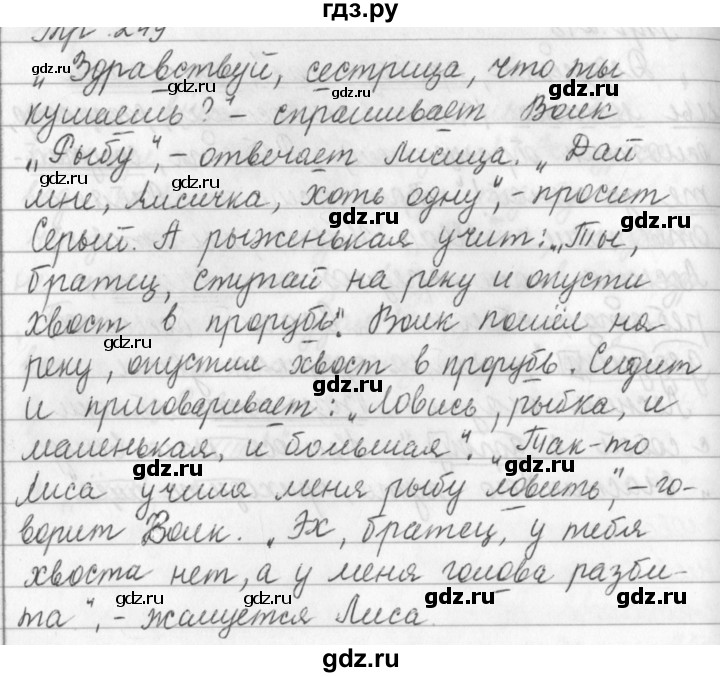 гдз.ру
Упр. 249
„Здравствуй, сестрица, что ты
кушаешь?“ – спрашивает Волк
„Рыбу“, – отвечает Лисица. „Дай
мне, Лисичка, хоть одну“, – просит
Серый. А рыженькая учит: „Ты,
братец, ступай на реку и опусти
хвост в прорубь“. Волк пошёл на
реку, опустил хвост в прорубь. Сидит
и приговаривает: „Ловись, рыбка, и
маленькая, и большая“. „Так-то
Лиса учила меня рыбу ловить“, – го-
ворит Волк. „Эх, братец, у тебя
хвоста нет, а у меня голова разби-
та“, – жалуется Лиса.
gdz.ru